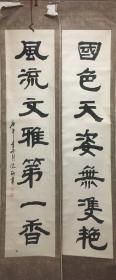 國色天姿無雙艷
風流文雅第一香